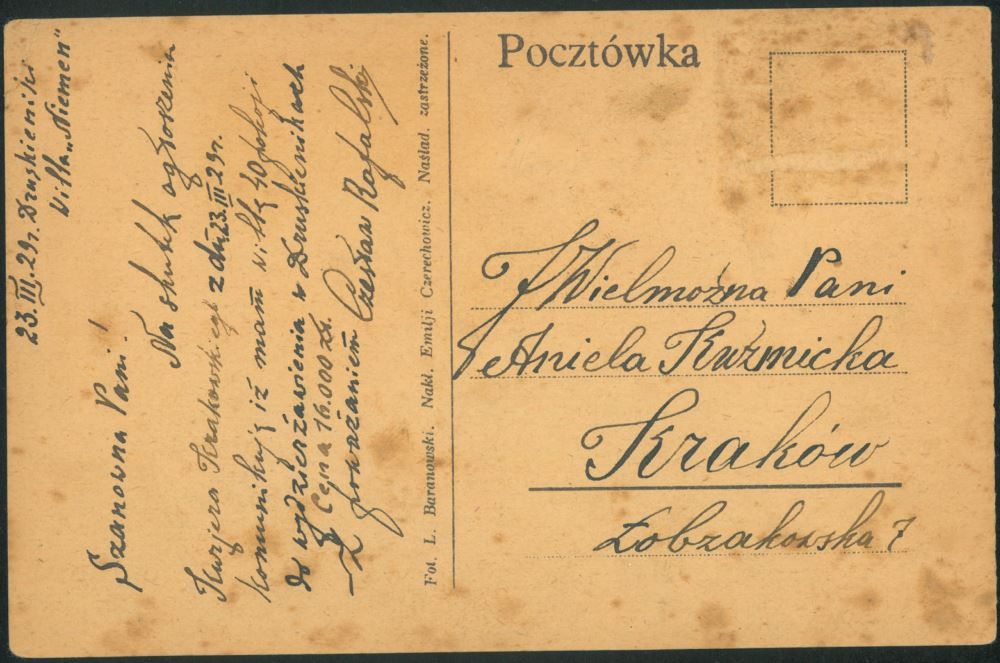 Pocztówka
23.III.29r. Druskieniki
Villa „Niemen”
Szanowna Pani!
Na skutek ogłoszenia
Kurjera Krakowskiego z dn. 23.III 29r.
komunikuję iż mam villę 40 pokoji
do wydzierżawienia w Druskienikach
Cena 16.000 zł.
Z poważaniem Czesław Rafalski
Fot. L. Baranowski. Nakł. Emilji Czerechowicz. Naślad. zastrzeżone.
JWielmożna Pani
Aniela Kuźmicka
Kraków
Łobzakowska 7